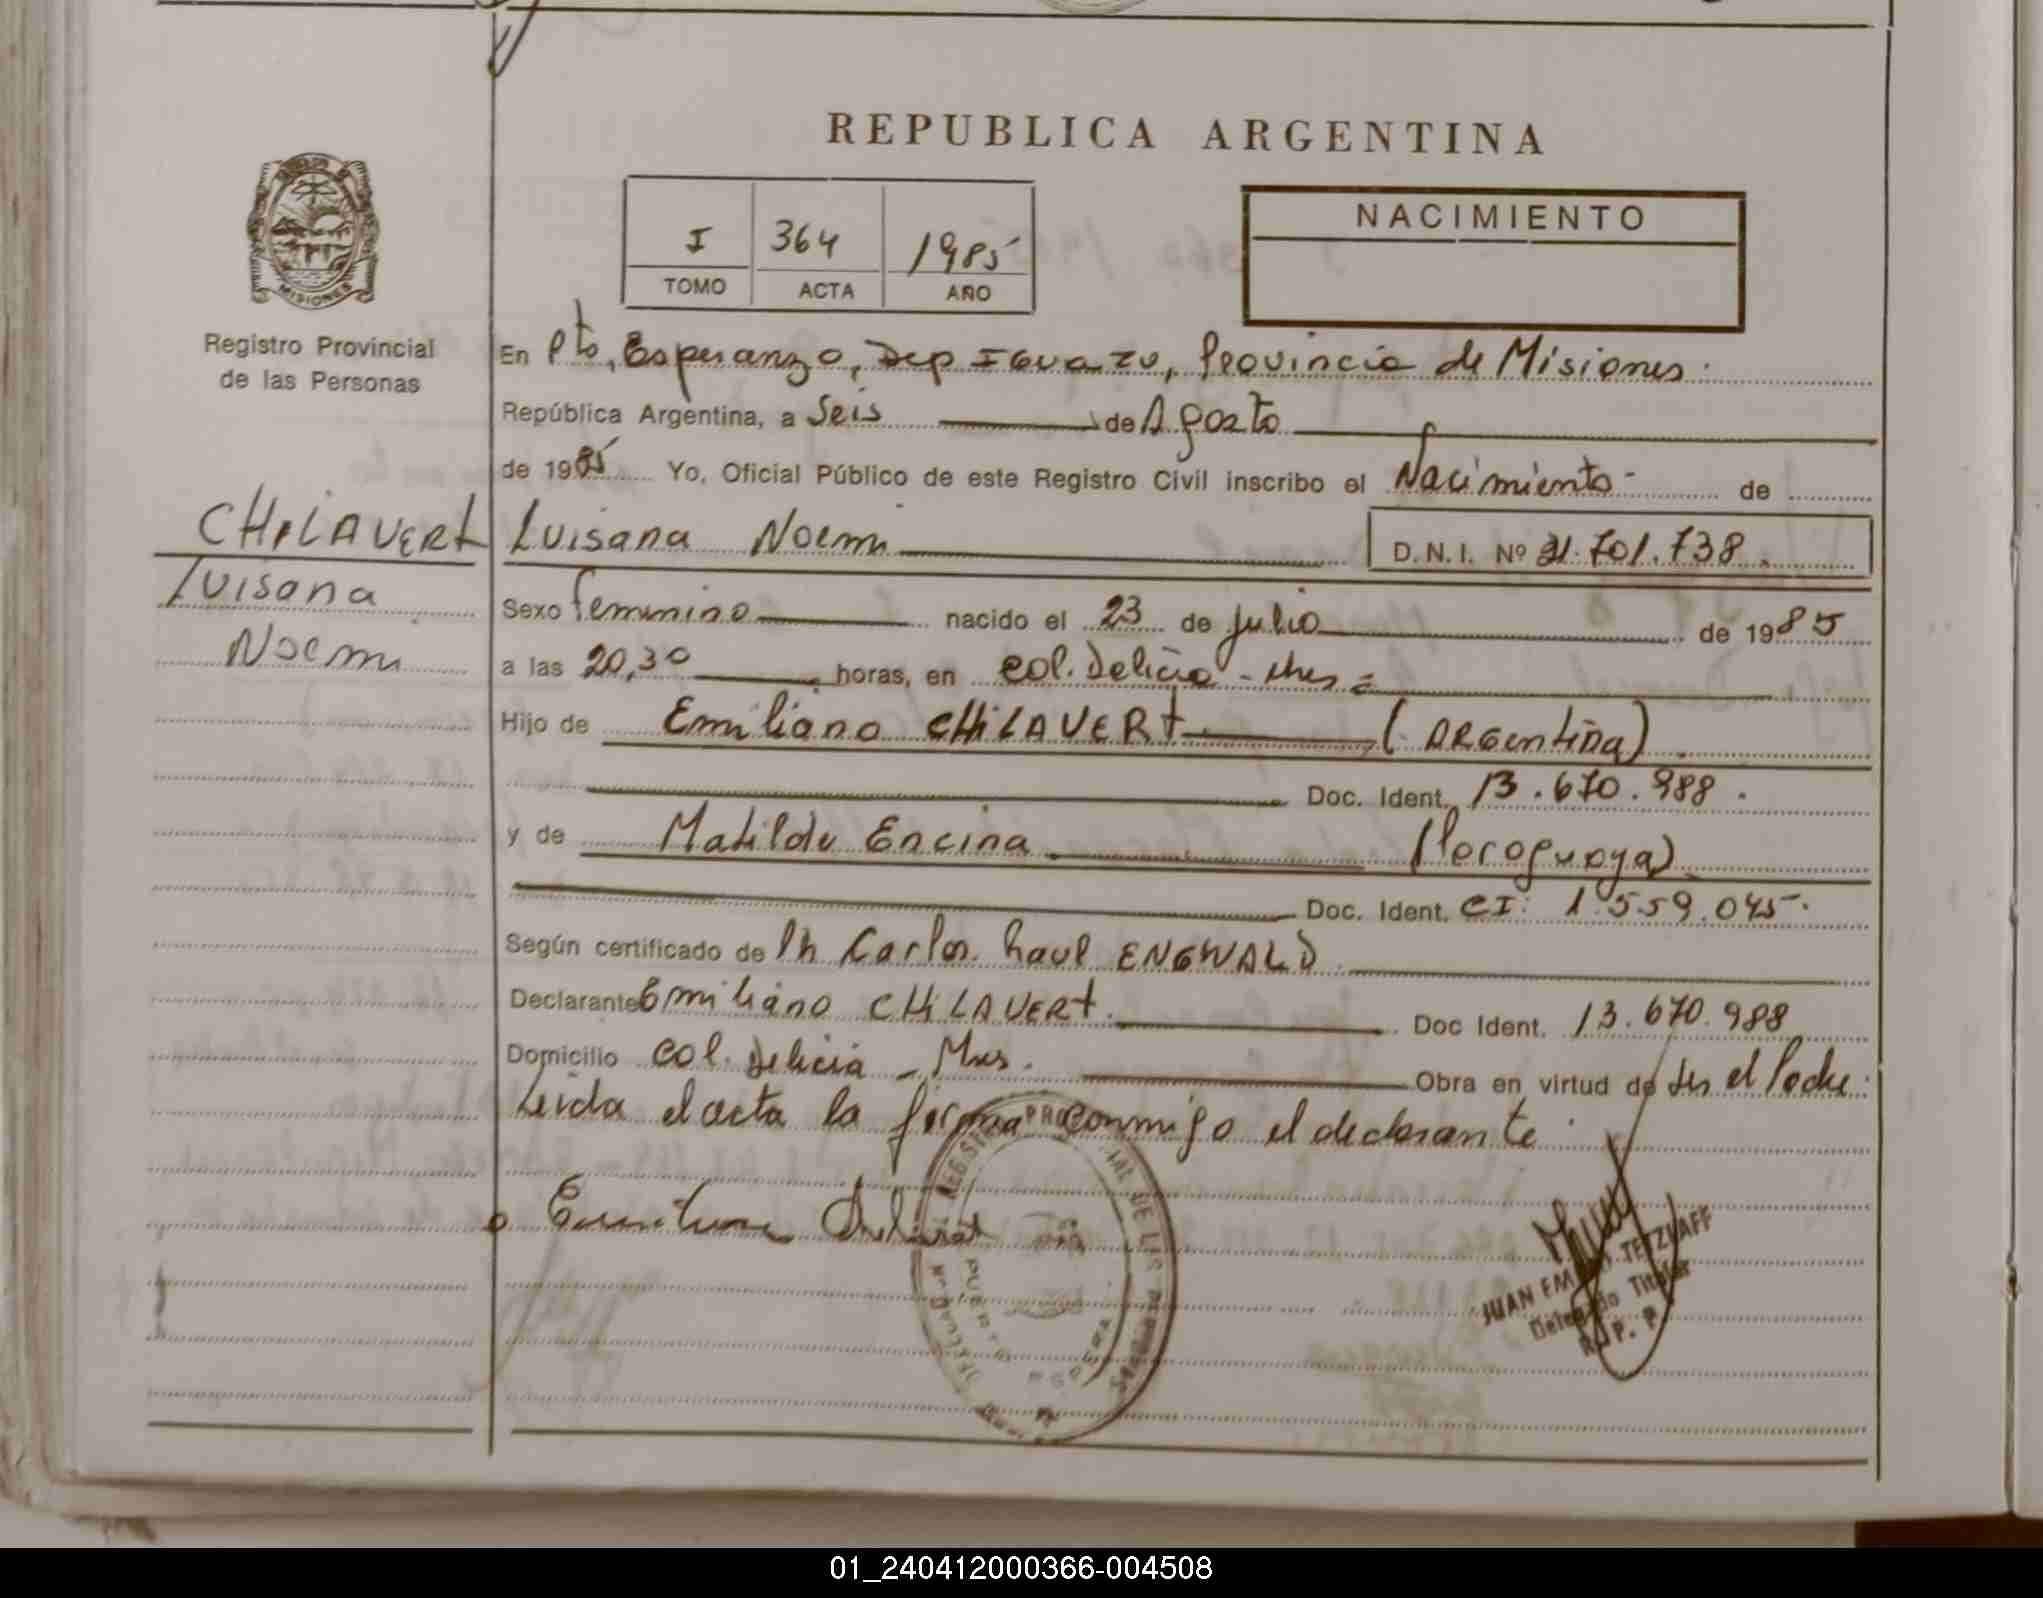 REPUBLICA ARGENTINA
I 364 1985
TOMO ACTA AÑO
NACIMIENTO
MISIONES
Registro Provincial
de las Personas
En Pto, Esperanza, Dep IGuazu, Provincia de Misiones.
República Argentina, a Seis de Agosto
de 1985 Yo, Oficial Público de este Registro Civil inscribo el Nacimiento - de
CHiLAVERt
Luisana
Noemi
Luisana Noemi D.N.I. Nº 31.701.738.
Sexo femenino nacido el 23 de julio de 1985
a las 20,30 horas, en col. Delicia - Mnes =
Hijo de Emiliano CHiLAVERt (ARGentiña)
Doc. Ident. 13.670.988.
y de Matilde Encina (Paraguaya)
Doc. Ident. CI: 1.559.045.
Según certificado de Carlos Raul ENGWALD
Declarante Emiliano CHiLAVERt. Doc Ident. 13.670.988
Domicilio col. Delicia - Mnes. Obra en virtud de ser el Padre.
Leida el acta la firma conmigo el declarante
JUAN TETZLAFF
Delegado Titular
R. P. P.
01_240412000366-004508